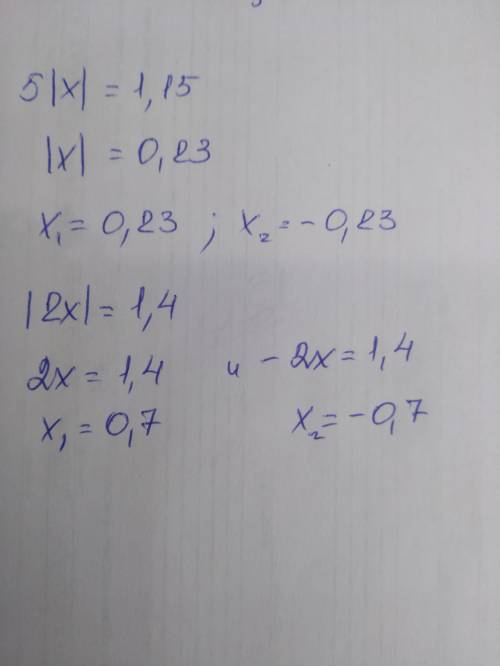 5|x| = 1,15
|x| = 0,23
x₁ = 0,23 ; x₂ = - 0,23
|2x| = 1,4
2x = 1,4 и - 2x = 1,4
x₁ = 0,7 x₂ = - 0,7